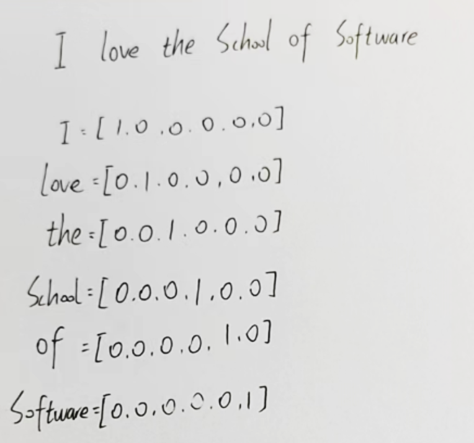 I love the School of Software
I=[1.0.0.0.0.0]
love=[0.1.0.0,0.0]
the=[0.0.1.0.0.0]
School=[0.0.0.1.0.0]
of=[0.0.0.0.1.0]
Software=[0.0.0.0.0,1]